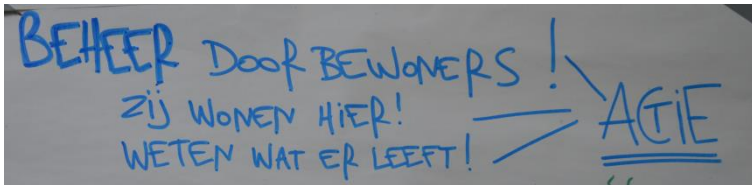 BEHEER DOOR BEWONERS!
ZIJ WONEN HIER!
WETEN WAT ER LEEFT!
ACTIE